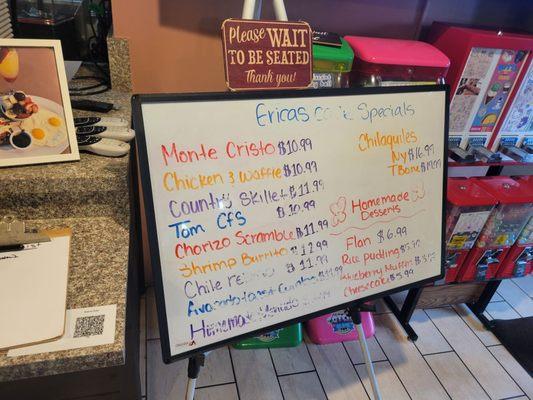 Please WAIT
TO BE SEATED
Thank you!
Ericas Specials
Monte Cristo $10.99
Chicken & Waffle $10.99
Country Skillet $11.99
Tom CFS $10.99
Chorizo Scramble $11.99
Shrimp Burrito $12.99
Chile $11.99
Avocado $11.99
Homemade Menudo
Chilaquiles
Ny $16.99
T Bone $19.99
Homemade
Desserts
Flan $6.99
Rice pudding $5.99
Blueberry Muffin
Cheesecake $5.99